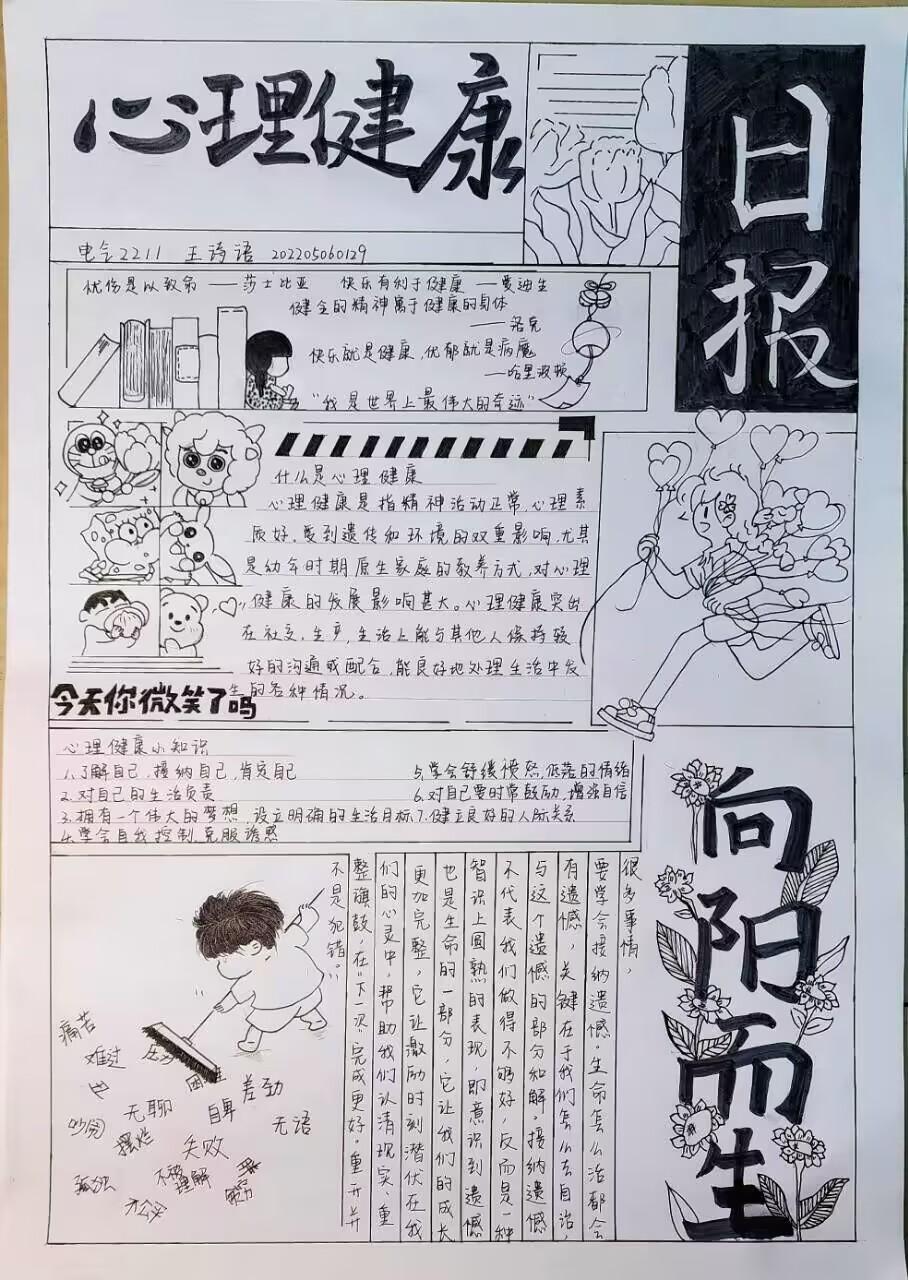 心理健康
日报
电会2211 王诗语 202205060129
忧伤足以致命 ——莎士比亚 快乐有利于健康 —爱迪生
健全的精神寓于健康的身体
——洛克
快乐就是健康,忧郁就是病魔
—哈里波顿
"我是世界上最伟大的奇迹"
什么是心理健康
心理健康是指精神活动正常,心理素
质好,受到遗传和环境的双重影响,尤其
是幼年时期原生家庭的教养方式,对心理
健康的发展影响甚大。心理健康突出
在社交,生产,生活上能与其他人保持较
好的沟通或配合,能良好地处理生活中发
生的各种情况。
今天你微笑了吗
心理健康小知识
1.了解自己,接纳自己,肯定自己
2.对自己的生活负责
3.拥有一个伟大的梦想,设立明确的生活目标
4.学会自我控制,克服诱惑
5.学会舒缓愤怒,低落的情绪
6.对自己要时常鼓励,增强自信
7.健立良好的人际关系
向阳而生
很多事情,
要学会接纳遗憾.生命怎么活都会
有遗憾,关键在于我们怎么去自洽,
与这个遗憾的部分和解.接纳遗憾
不代表我们做得不够好,反而是一种
智识上圆熟的表现,即意识到遗憾
也是生命的一部分,它让我们的成长
更加完整,它让激励时刻潜伏在我
们的心灵中,帮助我们认清现实、重
整旗鼓,在"下一次"完成更好.重开并
不是犯错。
痛苦
难过
困难
差劲
无聊
自卑
无语
吵闹
摆烂
失败
孤独
不被
理解
不公平